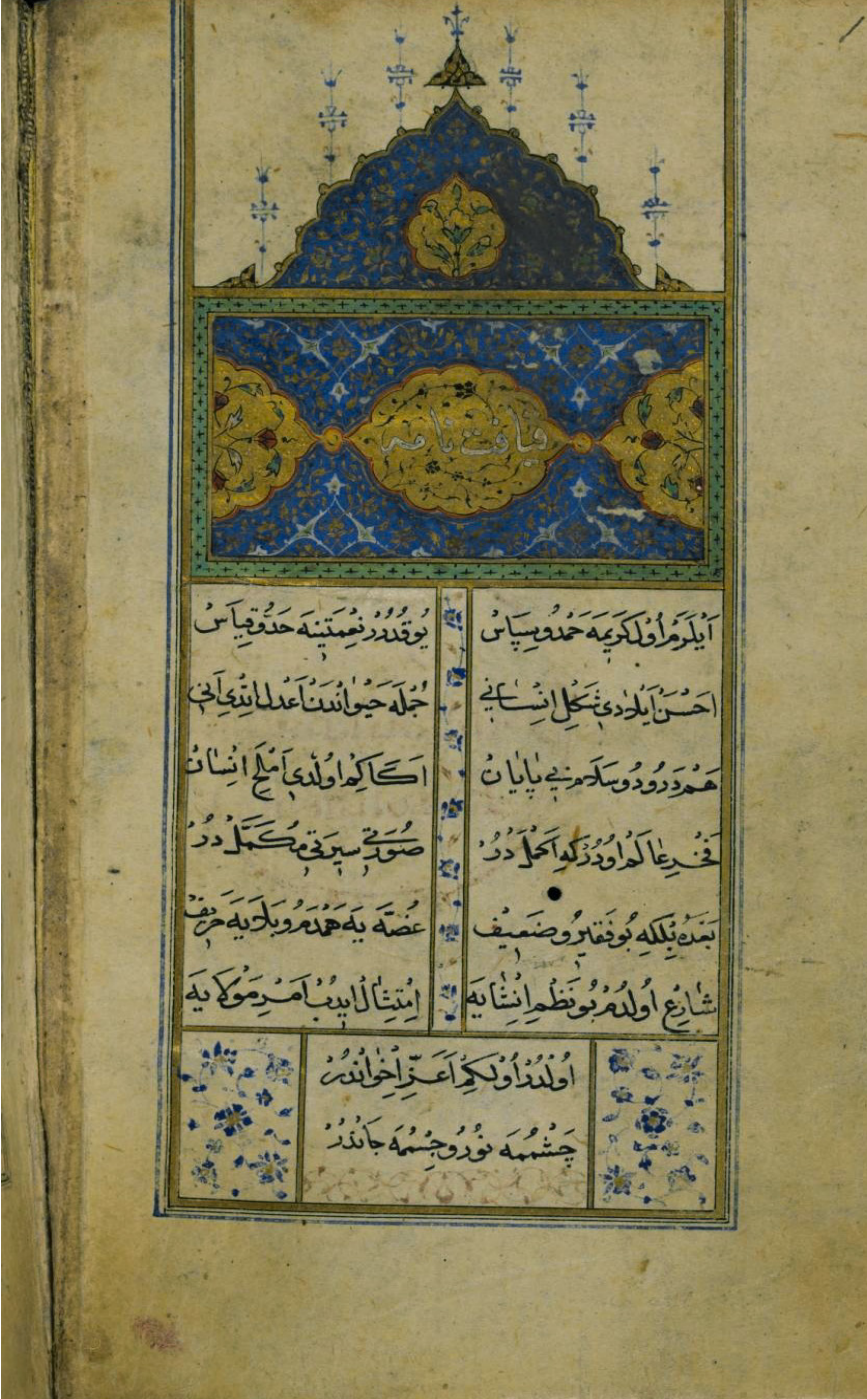 قیافت نامه
اَیْلَرَمْ اُولْ کَرِیمَه حَمْدُ و سِپَاسْ یُوقْدُرُرْ نِعْمَتِینَه حَدُّ و قِیَاسْ
اَحْسَنْ اَیْلَدِی شَکْلِ اِنْسَانِی جُمْلَه حَیْوَانْدَنْ اَعْدَلْ اِتْدِی اَنِی
هَمْ دَرُودُ و سَلَامِ بِی پَایَانْ اَکَا کِمْ اُولْدِی اَمْلَحِ اِنْسَانْ
فَخْرِ عَالَمْ اُودُرْ کِه اَجْمَلْ دُرْ صُورَتِی سِیرَتِی مُکَمَّلْ دُرْ
بَعْدَهُ بِلْکِه بُو فَقِیرُ و ضَعِیفْ غُصَّه یَه هَمْدَمُ و بَلَایَه حَرِیفْ
شَارِعْ اُولْدُمْ بُو نَظْمِ اِنْشَایَه اِمْتِثَالْ اِیدُبْ اَمْرِ مَوْلَایَه
اُولْدُرْ اُولْکِمْ اَعَزِّ اِخْوَانْدُرْ
چَشْمُمَه نُورُ و جِسْمُمَه جَانْدُرْ